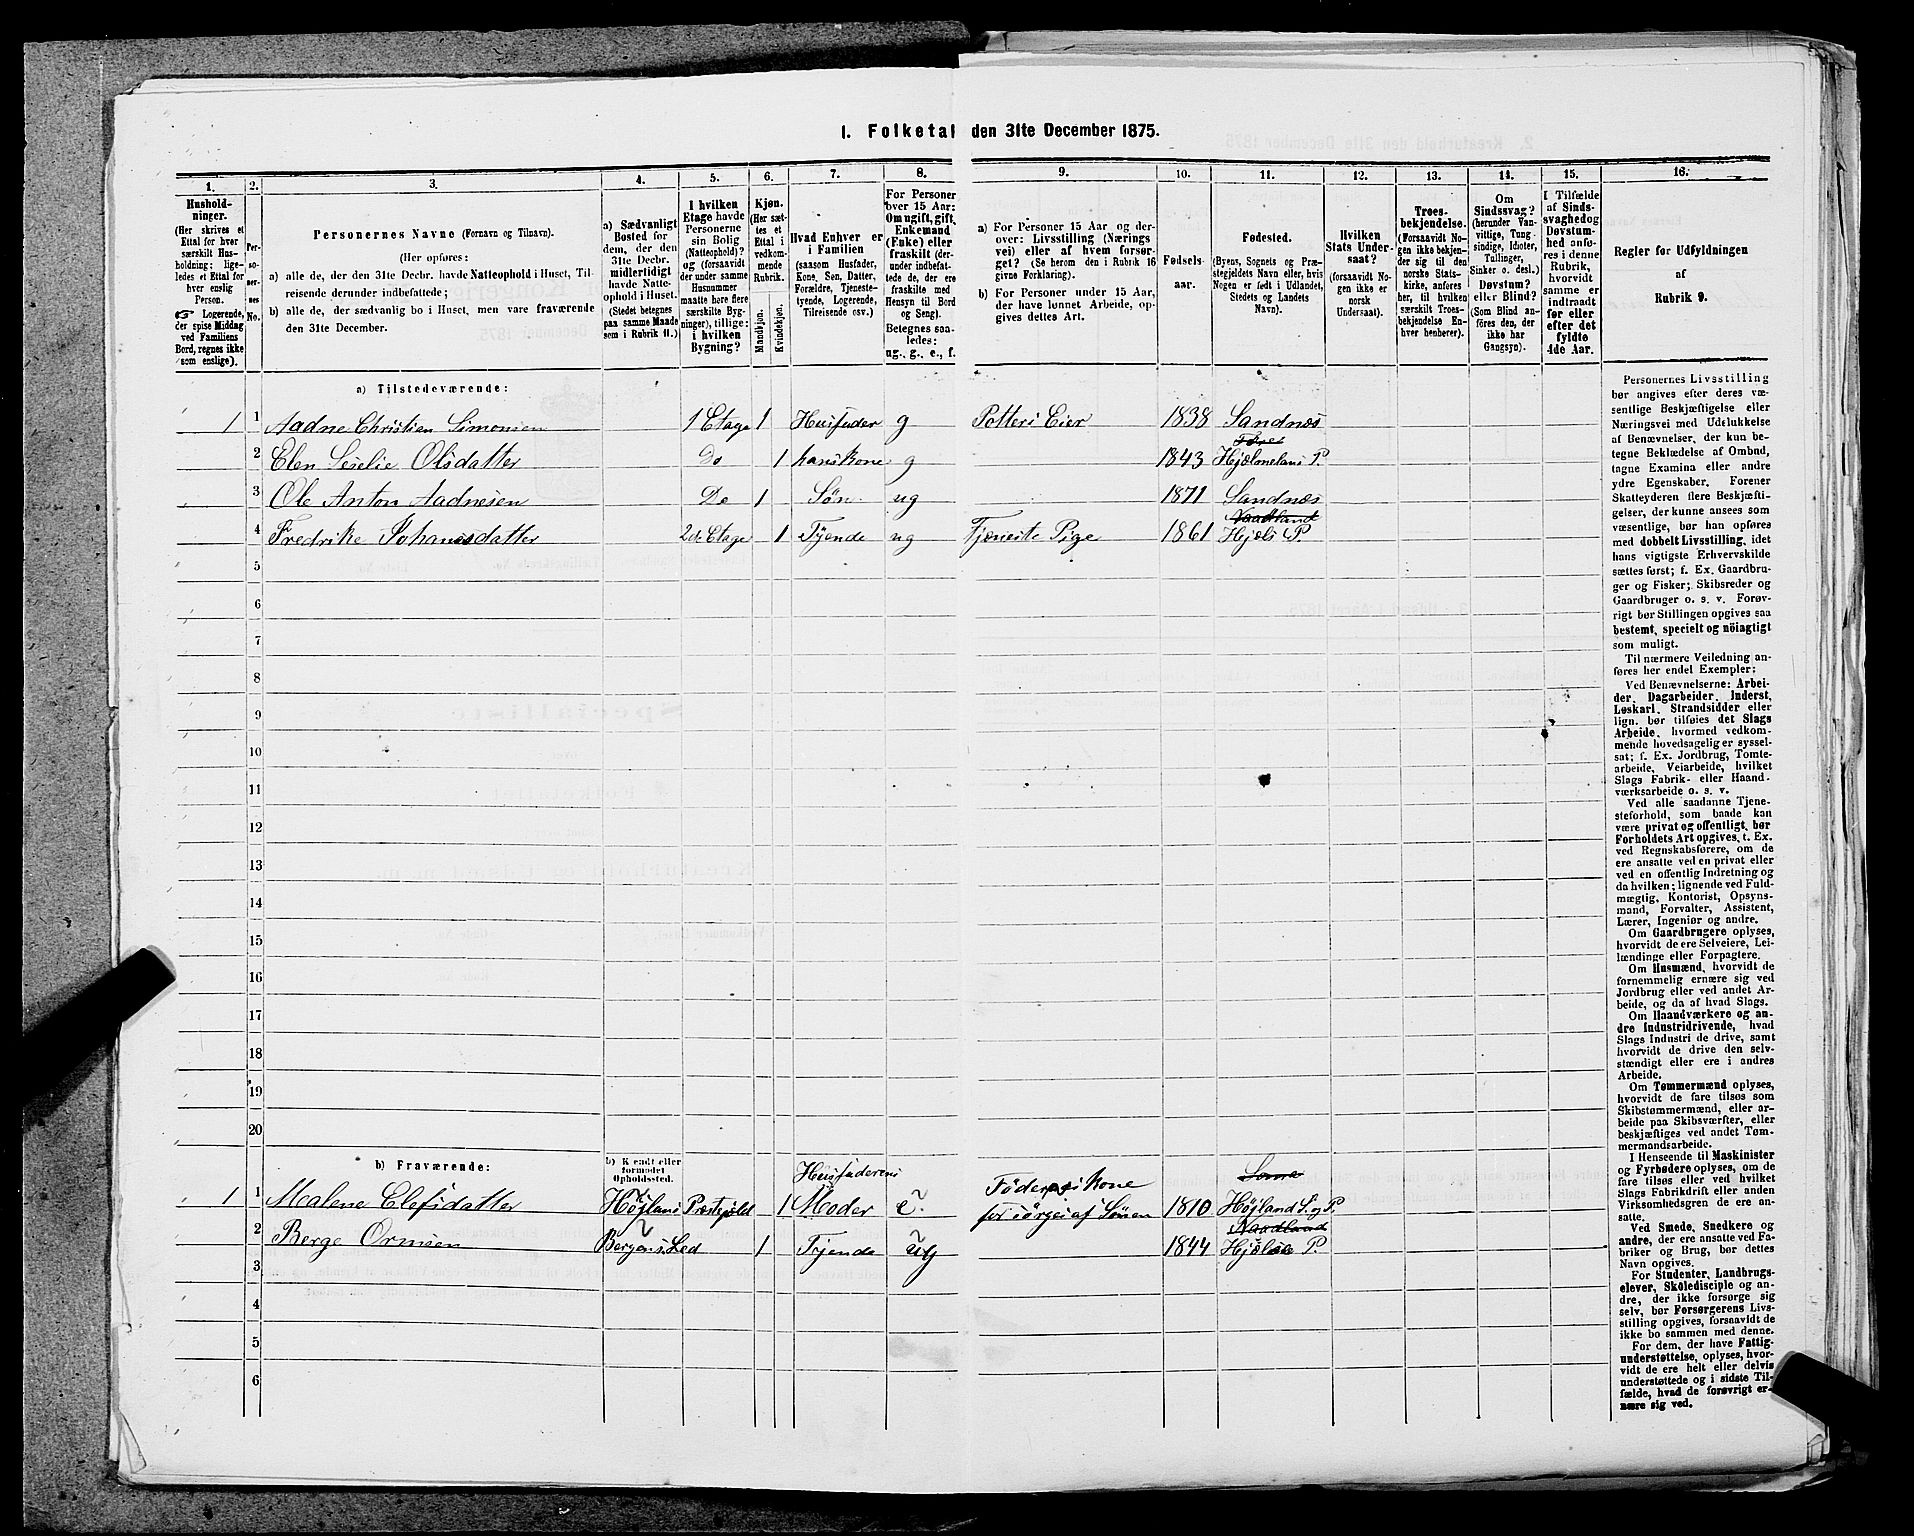 1. Folketal den 31te December 1875.
1. 2. 3. 4. 5. 6. 7. 8. 9. 10. 11. 12. 13. 14. 15. 16.
Hushold-
ninger.
(Her skrives et
Ettal for hver
særskilt Hus-
holdning; lige-
ledes et Ettal for
hver enslig
Person.
☞ Logerende,
der spise Middag
ved Familiens
Bord, regnes ikke
som enslige).
Per-
so-
ner-
nes
No.
Personernes Navne (Fornavn og Tilnavn).
(Her opføres:
a) alle de, der den 31te Decbr. havde Natteophold i Huset, Til-
reisende derunder indbefattede;
b) alle de, der sædvanlig bo i Huset, men vare fraværende
den 31te December.
a) Sædvanligt
Bosted for
dem, der den
31te Decbr.
midlertidigt
havde Natte-
ophold i Huset.
(Stedet betegnes
paa samme Maade
som i Rubrik 11.)
I hvilken
Etage havde
Personerne
sin Bolig
(Natteophold)?
og (forsaavidt
der under samme
Husnummer
maatte høre flere
særskilte Byg-
ninger), tillige:
i hvilken
Bygning?
Kjøn.
(Her sæt-
tes et
Ettal i
vedkom-
mende
Rubrik.
Mandkjøn.
Kvindekjøn.
Hvad Enhver er
i Familien
(saasom Husfader,
Kone, Søn, Datter,
Forældre, Tjeneste-
tyende, Logerende,
Tilreisende osv.)
For Personer
over 15 Aar:
Om ugift, gift,
Enkemand
(Enke) eller
fraskilt (der-
under indbefat-
tede de, der ere
fraskilte med
Hensyn til Bord
og Seng).
Betegnes saa-
ledes:
ug., g., e., f.
a) For Personer 15 Aar og der-
over: Livsstilling (Nærings
vei) eller af hvem forsør-
get? (Se herom den i Rubrik 16
givne Forklaring).
b) For Personer under 15 Aar,
der have lønnet Arbeide, op-
gives dettes Art.
Fødsels-
aar.
Fødested.
(Byens, Sognets og Præ-
stegjeldets Navn eller, hvis
Nogen er født i Udlandet,
Stedets og Landets
Navn).
Hvilken
Stats Under-
saat?
(forsaavidt No-
gen ikke er
norsk
Undersaat).
Troes-
bekjendelse.
(Forsaavidt No-
gen ikke bekjen-
der sig til den
norske Stats-
kirke, anføres
her, til hvilken
særskilt Troes-
bekjendelse En-
hver henhører).
Om
Sindssvag?
(herunder Van-
vittige, Tung-
sindige, Idioter,
Tullinger,
Sinker o. desl.)
Døvstum?
eller Blind?
(Som Blind an-
føres den, der
ikke har
Gangsyn).
I Tilfælde
af Sinds-
svaghed og
Døvstum-
hed anfø-
res i denne
Rubrik,
hvorvidt
samme er
indtraadt
før eller
efter det
fyldte
4de Aar.
Regler for Udfyldningen
af
Rubrik 9.
a) Tilstedeværende:
1 1 Aadne Christian Simonsen 1 Etage 1 Husfader g Potteri Eier 1838 Sandnæs
2 Elen Seselie Olsdatter Do 1 hans kone g 1843 Hjelmelans P.
3 Ole Anton Aadnesen Do 1 Søn ug 1871 Sandnæs
Naadland
4 Fredrike Johanesdatter 2de Etage 1 Tyende ug Tjeneste Pige 1861 Hjels P.
5
6
7
8
9
10
11
12
13
14
15
16
17
18
19
20
b) Fraværende:
b) Kjendt eller
formodet
Opholdssted.
Husfaderens
1 1 Malene Elefsdatter Højlans Præstegjeld 1 Moder e. Føderaadskone
forsørges af Sønen 1810 Højland S. og P.
Naadland
2 Berge Ormsen Bergens Led 1 Tyende ug 1844 Hjelme P.
3
4
5
6
Personernes Livsstilling
bør angives efter deres væ-
sentlige Beskjæftigelse eller
Næringsvei med Udelukkelse
af Benævnelser, der kun be-
tegne Beklædelse af Ombud,
tagne Examina eller andre
ydre Egenskaber. Forener
Skatteyderen flere Beskjæfti-
gelser, der kunne ansees som
væsentlige, bør han opføres
med dobbelt Livsstilling, idet
hans vigtigste Erhvervskilde
sættes først; f. Ex. Gaardbru-
ger og Fisker; Skibsreder og
Gaardbruger o. s. v. Forøv-
rigt bør Stillingen opgives saa
bestemt, specielt og nöiagtigt
som muligt.
Til nærmere Veiledning an-
føres her endel Exempler:
Ved Benævnelserne: Arbei-
der, Dagarbeider, Inderst,
Løskarl, Strandsidder eller
lign. bør tilføies det Slags
Arbeide, hvormed vedkom-
mende hovedsagelig er syssel-
sat; f. Ex. Jordbrug, Tomte-
arbeide, Veiarbeide, hvilket
Slags Fabrik- eller Haand-
værksarbeide o. s. v.
Ved alle saadanne Tjene-
steforhold, som baade kan
være privat og offentligt, bør
Forholdets Art opgives, t. Ex.
ved Regnskabsførere, om de
ere ansatte ved en privat eller
ved en offentlig Indretning og
da hvilken; lignende ved Fuld-
mægtig, Kontorist, Opsyns-
mand, Forvalter, Assistent,
Lærer, Ingeniør og andre.
Om Gaardbrugere oplyses,
hvorvidt de ere Selveiere, Lei-
lændinge eller Forpagtere.
Om Husmænd, hvorvidt de
fornemmelig ernære sig ved
Jordbrug eller ved andet Ar-
beide, og da af hvad Slags.
Om Haandværkere og an-
dre Industridrivende, hvad
Slags Industri de drive, samt
hvorvidt de drive den selv-
stændigt eller ere i andres
Arbeide.
Om Tømmermænd oplyses,
hvorvidt de fare tilsøs som
Skibstømmermænd, eller ar-
beide paa Skibsværfter, eller
beskjæftiges ved andet Tøm-
mermandsarbeide.
I Henseende til Maskinister
og Fyrbødere oplyses, om de
fare tilsøs eller ved hvilket
Slags Fabrikdrift eller anden
Virksomhedsgren de ere an-
satte.
Ved Smede, Snedkere og
andre, der ere ansatte ved Fa-
briker og Brug, bør dettes
Navn opgives.
For Studenter, Landbrugs-
elever, Skoledisciple og an-
dre, der ikke forsørge sig
selv, bør Forsørgerens Livs-
stilling opgives, forsaavidt de
ikke bo sammen med denne.
For dem, der have Fattig-
understøttelse, oplyses, hvor-
vidt de ere helt eller delvis
understøttede og i sidste Til-
fælde, hvad de forøvrigt er-
nære sig ved.